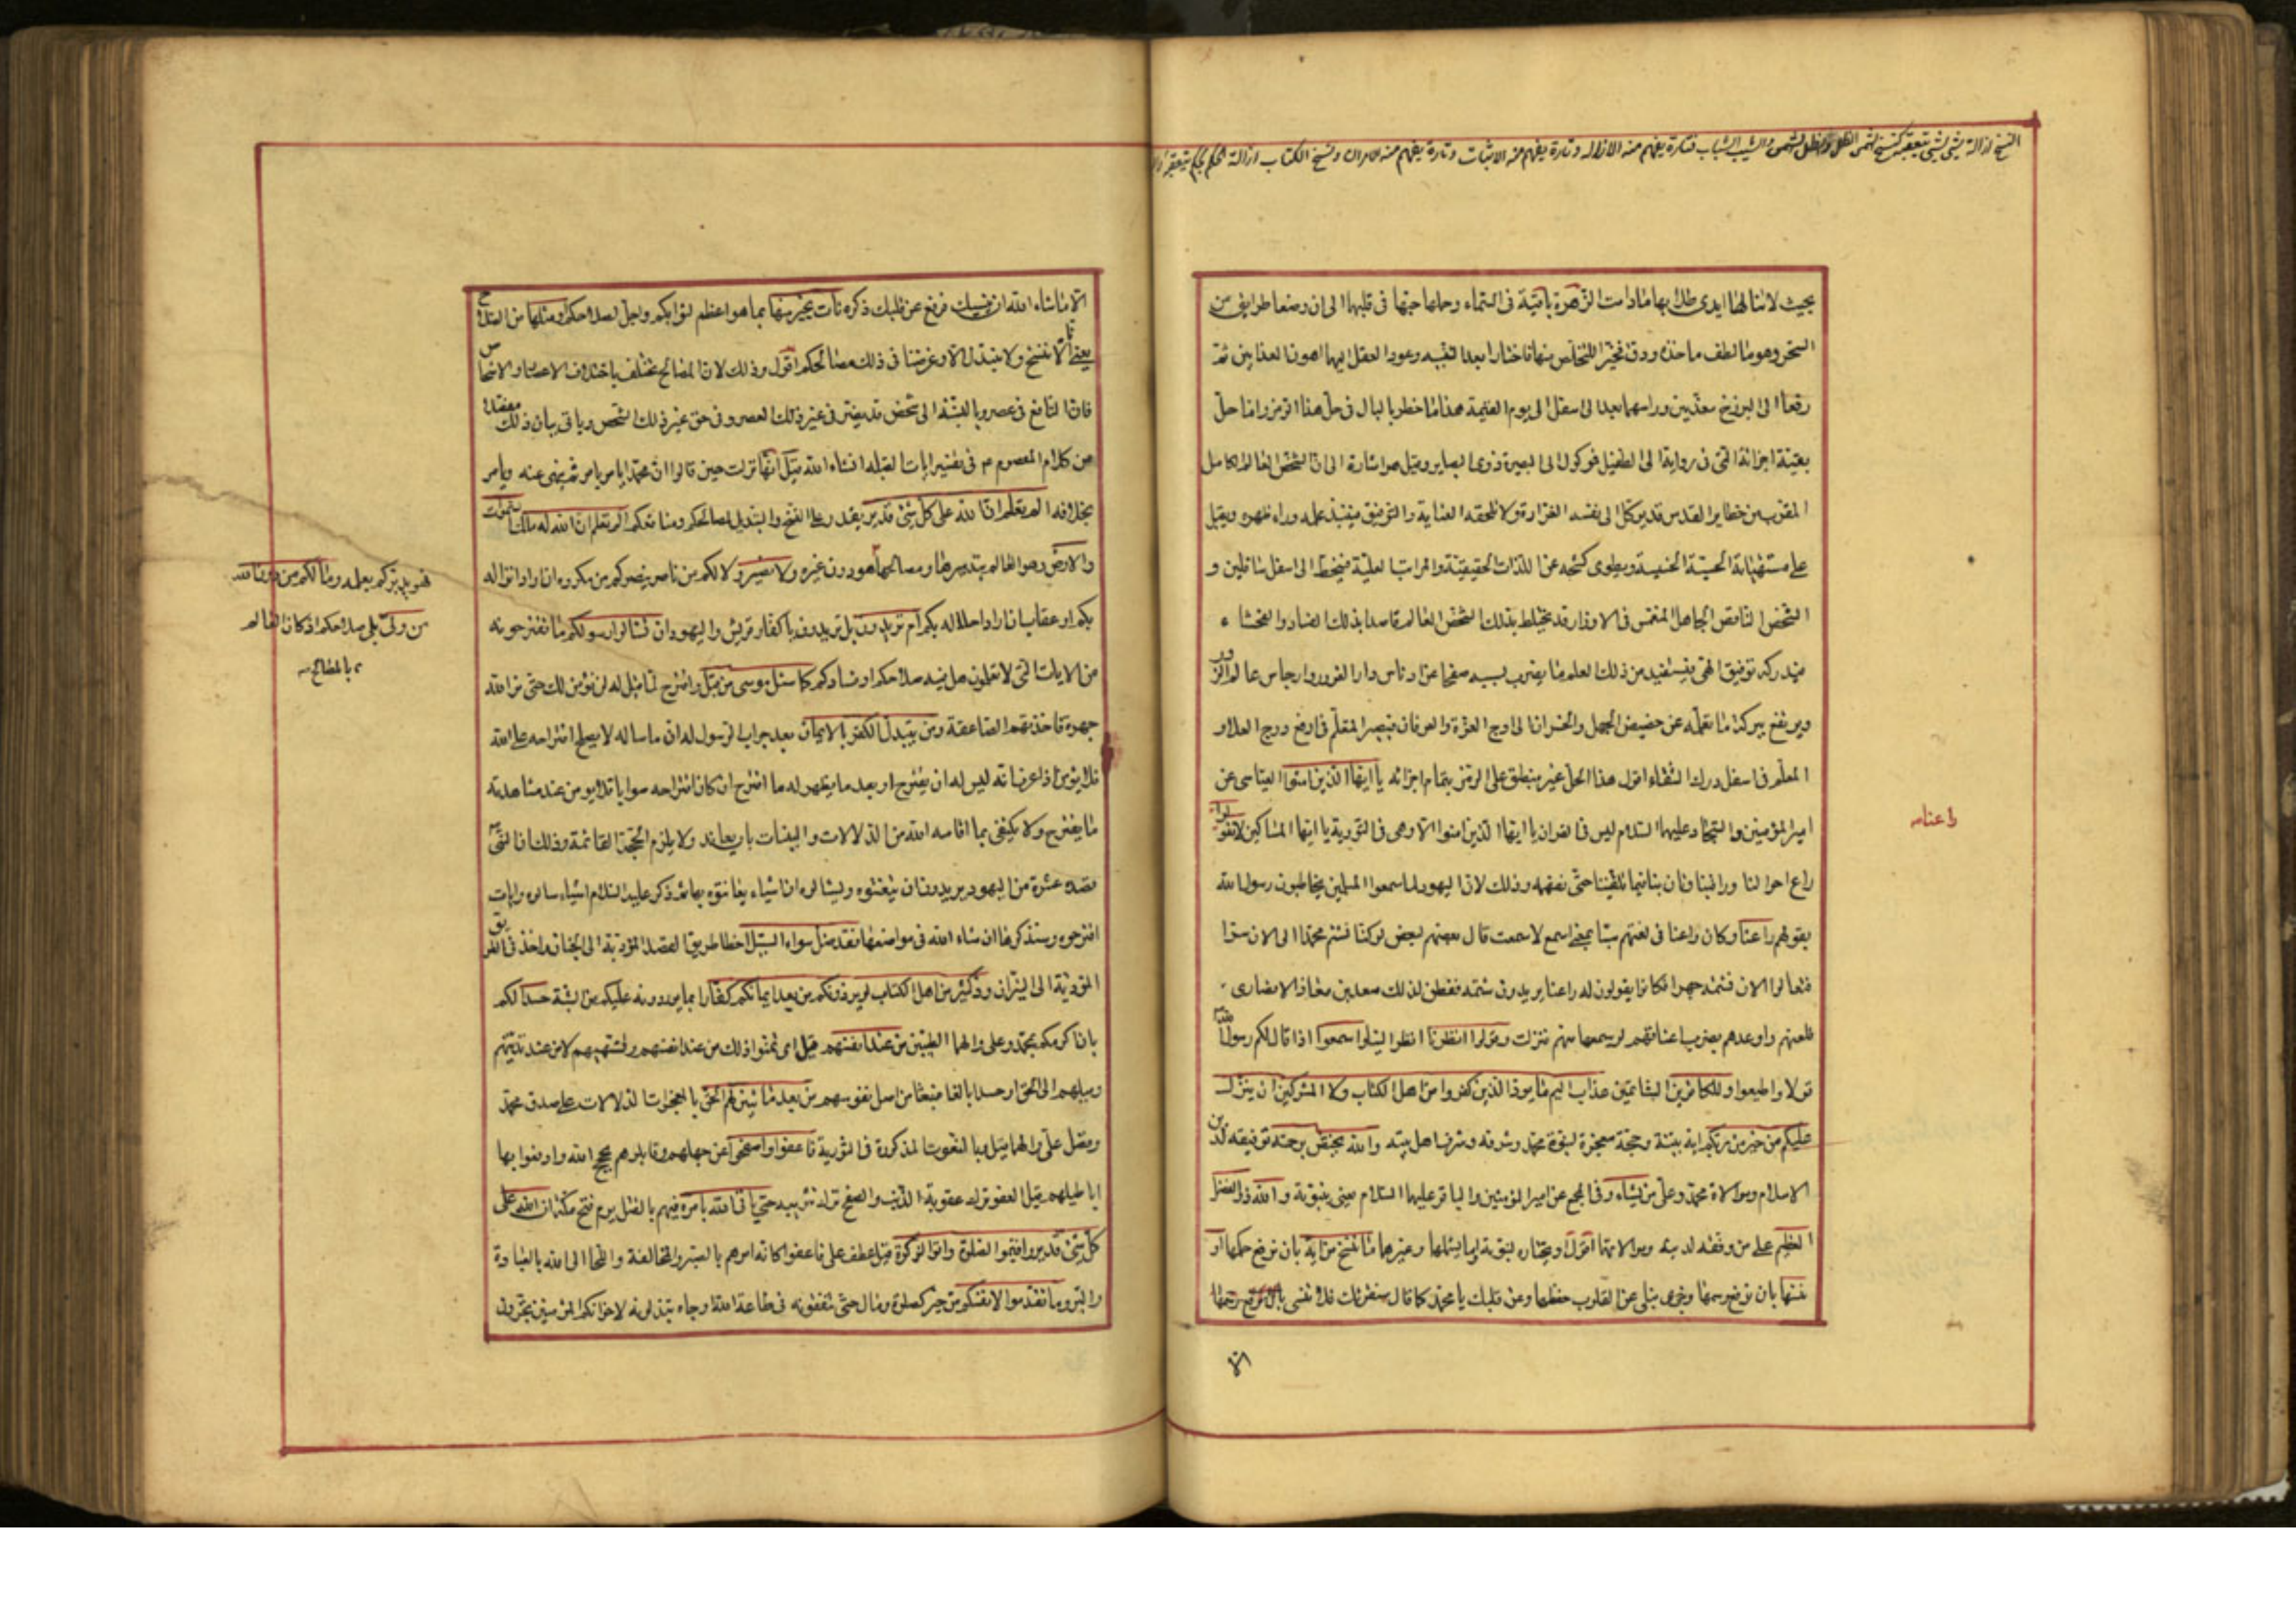 النسخ ازالة شئ بشئ يتعقبه كنسخ الشمس الظل والظل الشمس والشيب الشباب فتارة يفهم منه الازالة وتارة يفهم منه الاثبات وتارة يفهم منه الامران ونسخ الكتاب ازالة الحكم بحكم يتعقبه
بحيث لا تنالها ايدى طلابها ما دامت الزهرة باقية فى السماء وحملها حبها فى قلبهما الى ان وضعا طرايق من
السحر وهو ما لطف ماخذه ودق فخيرا للتخلص منها فاختارا بعد التنبه وعود العقل اليهما اهون العذابين ثم
رفعا الى البرزخ معذبين وراسهما بعد الى اسفل الى يوم القيمة هذا ما خطر بالبال فى حل هذا الرمز واما حل
بقية اجزائه التى فى رواية ابى الطفيل فموكول الى بصيرة ذوى البصاير وقيل هو اشارة الى ان الشخص العالم الكامل
المقرب من حظاير القدس قد يوكل الى نفسه الغرارة ولا تلحقه العناية والتوفيق فينبذ علمه وراء ظهره ويقبل
على مشتهياته الحسية الخسيسة ويطوى كشحه عن اللذات الحقيقية والمراتب العلية فينحط الى اسفل سافلين و
الشخص الناقص الجاهل المنغمس فى الاوزار قد يختلط بذلك الشخص العالم قاصدا بذلك الفساد والفحشاء
فيدركه توفيق الهى فيستفيد من ذلك العلم ما يضرب بسببه صفحا عن ادناس دار الغرور وارجاس عالم الزور
ويرتفع ببركة ما تعلمه عن حضيض الجهل والخسران الى اوج العزة والعرفان فيصير المتعلم فى ارفع درج العلاء و
المعلم فى اسفل درك الشقاء اقول هذا الحل غير منطبق على الرمز بتمام اجزائه يا ايها الذين امنوا العياشى عن
امير المؤمنين والسجاد عليهما السلام ليس فى القران يا ايها الذين امنوا الا وهى فى التورية يا ايها المساكين لا تقولوا
راعنا
راع احوالنا وراقبنا وتان بنا فيما تلقيننا حتى نفهمه وذلك لان اليهود لما سمعوا المسلمين يخاطبون رسول الله
بقولهم راعنا وكان راعنا فى لغتهم سبا بمعنى اسمع لا سمعت قال بعضهم لبعض لو كنا نشتم محمدا الى الان سرا
فتعالوا الان نشتمه جهرا فكانوا يقولون له راعنا يريدون شتمه ففطن لذلك سعد بن معاذ الانصارى
فلعنهم واوعدهم بضرب اعناقهم لو سمعها منهم فنزلت وقولوا انظرنا انظر الينا واسمعوا اذا قال لكم رسول الله
قولا واطيعوا وللكافرين الشاتمين عذاب اليم ما يود الذين كفروا من اهل الكتاب ولا المشركين ان ينزل
عليكم من خير من ربكم اية بينة وحجة معجزة لنبوة محمد وشرفه وشرف اهل بيته والله يختص برحمته توفيقه لدين
الاسلام وموالاة محمد وعلى من يشاء وفى المجمع عن امير المؤمنين والباقر عليهما السلام يعنى بنبوته والله ذو الفضل
العظيم على من وفقه لدينه وموالاتهما اقول او يختاره لنبوته او ما يشملها وغيرهما ما ننسخ من اية بان نرفع حكمها او
ننسها بان نرفع رسمها ونمحى عن القلوب حفظها وعن قلبك يا محمد كما قال سنقرئك فلا تنسى
الا
الا ما شاء الله ان ينسيك فرفع عن قلبك ذكره نات بخير منها بما هو اعظم لثوابكم واجل لصلاحكم او مثلها من الصلاح
يعنى انا لا ننسخ ولا نبدل الا وغرضنا فى ذلك مصالحكم اقول وذلك لان المصالح تختلف باختلاف الاعصار والاشخاص
فان النافع فى عصر وبالنسبة الى شخص قد يضر فى غير ذلك العصر وفى حق غير ذلك الشخص وياتى بيان ذلك مفصلا
من كلام المعصوم م فى تفسير ايات القبلة انشاء الله قيل انها نزلت حين قالوا ان محمدا يامر بامر ثم ينهى عنه ويامر
بخلافه الم تعلم ان الله على كل شئ قدير يقدر على النسخ والتبديل لمصالحكم ومنافعكم الم تعلم ان الله له ملك السموات
والارض وهو العالم بتدبيرها ومصالحها دون غيره ولا نصير ولا لكم من ناصر ينصركم من مكروه ان اراد انزاله
فهو يدبركم بعلمه وما لكم من دون الله
من ولى يلى صلاحكم اذ كان العالم
بالمصالح
بكم او عقاب ان اراد احلاله بكم ام تريدون بل تريدون يا كفار قريش واليهود ان تسالوا رسولكم ما تقترحونه
من الايات التى لا تعلمون هل فيه صلاحكم او فسادكم كما سئل موسى من قبل واقترح لما قيل له لن نؤمن لك حتى نرى الله
جهرة فاخذتهم الصاعقة ومن يتبدل الكفر بالايمان بعد جواب الرسول له ان ما ساله لا يصلح اقتراحه على الله
فلا يؤمن اذا عرف انه ليس له ان يقترح او بعد ما يظهر له ما اقترح ان كان اقتراحه صوابا فلا يؤمن عند مشاهدة
ما يقترح ولا يكتفى بما اقامه الله من الدلالات والبينات بل يعاند ولا يلزم الحجة القائمة وذلك ان النبى
قصده عشرة من اليهود يريدون ان يتعنتوه ويسالوه ان اشياء يعانتوه بها ثم ذكر عليه السلام اشياء سالوه وايات
اقترحوه وسنذكرها ان شاء الله فى مواضعها فقد ضل سواء السبيل اخطا طريق القصد المؤدية الى الجنان واخذ فى الطريق
المؤدية الى النيران ود كثير من اهل الكتاب لو يردونكم من بعد ايمانكم كفارا بما يوردونه عليكم من الشبه حسدا لكم
بان اكرمكم بمحمد وعلى والهما الطيبين من عند انفسهم قيل اى تمنوا ذلك من عند انفسهم وتشهيهم لا من عند تدينهم
وميلهم الى الحق او حسدا بالغا منبعثا من اصل نفوسهم من بعد ما تبين لهم الحق بالمعجزات الدلالات على صدق محمد
وفضل على والهما قيل بالنعوت المذكورة فى التورية فاعفوا واصفحوا عن جهلهم وقابلوهم بحجج الله وادفعوا بها
اباطيلهم قيل العفو ترك عقوبة الذنب والصفح ترك تثريبه حتى ياتى الله بامره فيهم بالقتل يوم فتح مكة ان الله على
كل شئ قدير واقيموا الصلوة واتوا الزكوة قيل عطف على فاعفوا كانه امرهم بالصبر والمخالفة والتجا الى الله بالعبادة
والبر وما تقدموا لانفسكم من خير كصلوة ومال حتى تنفقونه فى طاعة الله وجاه تبذلونه لاخوانكم المؤمنين تجرون